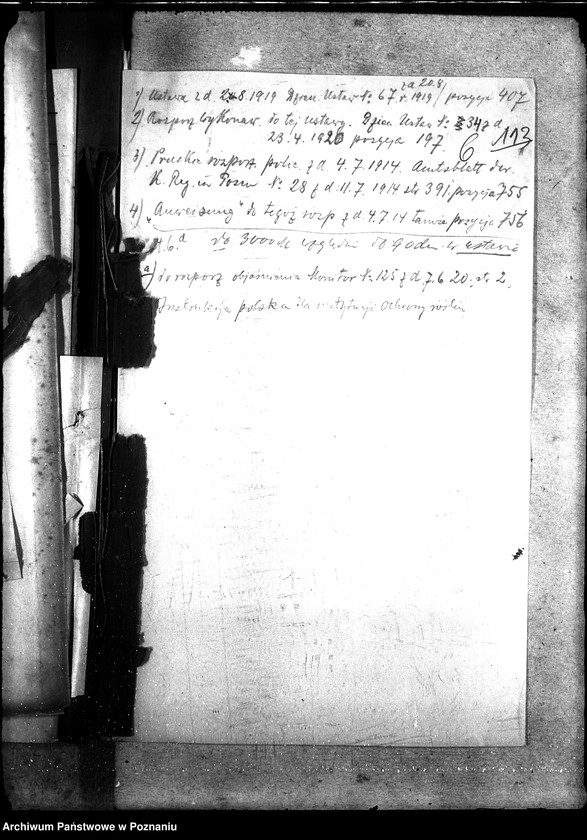 z d 20.8
1) Ustawa z d. 2.8.1919 Dzien. Ustaw No. 67 r. 1919/ pozycja 407
2) Rozporz wykonaw. do tej ustawy. Dzien Ustaw No. 34 z d
23.4.1920 pozycja 197
6 113
3) Pruskie rozporz. polic. z d. 4.7.1914. Amtsblatt der
K. Reg. in Posen No. 28 z d. 11.7.1914 str 391 pozycja 755
4) „Anweisung" do tegoż rozp z d 4.7.14 tamże pozycja 756
do 3000 względn do w ustawie
a) do rozporz objaśnienia Monitor No. 125 z d. 7.6 20. str 2.
Instrukcja polska dla instytucji Ochrony roślin
Archiwum Państwowe w Poznaniu